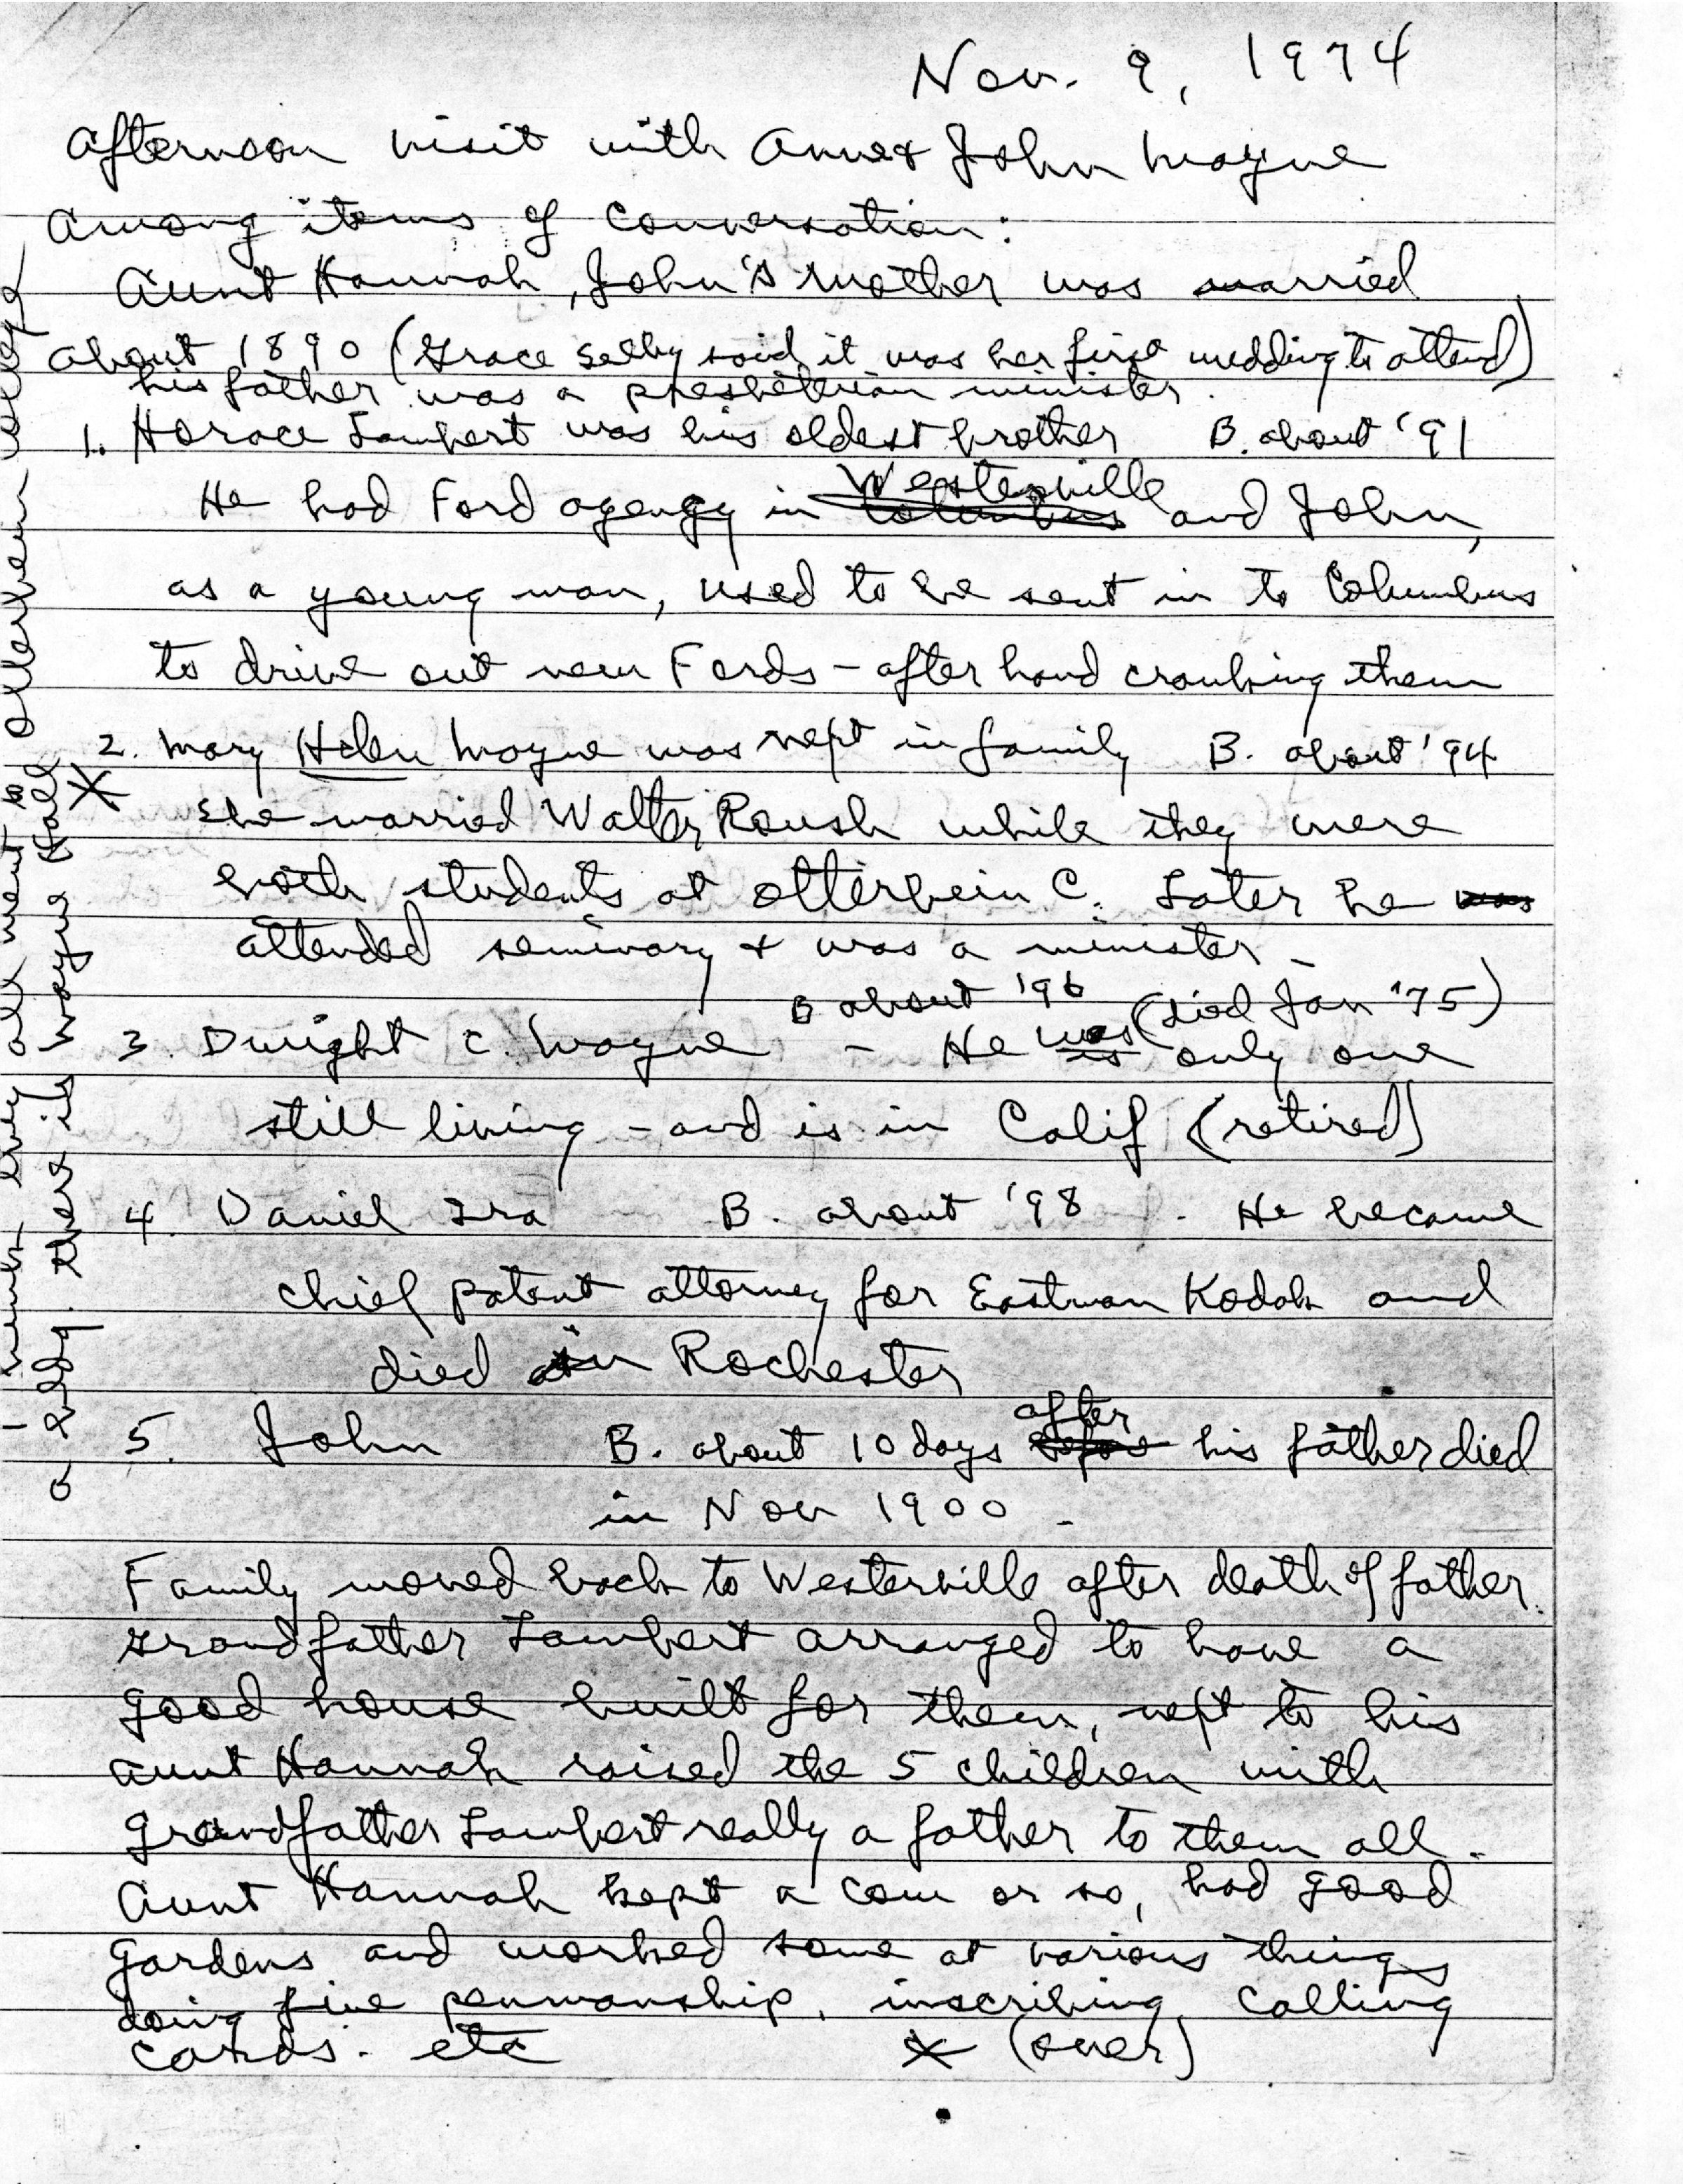 Nov. 9, 1974
Afternoon visit with Anne & John Mayne
Among items of conversation:
Aunt Hannah, John's mother was married
about 1890 (Grace Selby said it was her first wedding to attend)
his father was a presbeterian minister.
1. Horace Lambert was his oldest brother B. about '91
He had Ford agency in Columbus Westerville and John,
as a young man, used to be sent in to Columbus
to drive out new Fords - after hand cranking them
2. Mary Helen Mayne was next in family B. about '94
* She married Walter Roush while they were
both students at Otterbein C. Later he was
attended seminary & was a minister -
B about '96 (died Jan '75)
3. Dwight C. Mayne - He is was only one
still living - and is in Calif (retired)
4. Daniel Ira B. about '98. He became
chief patent attorney for Eastman Kodak and
died in Rochester
5. John B. about 10 days before after his father died
in Nov 1900 -
Family moved back to Westerville after death of father.
Grandfather Lambert arranged to have a
good house built for them, next to his
Aunt Hannah raised the 5 children with
Grandfather Lambert really a father to them all.
Aunt Hannah kept a cow or so, had good
gardens and worked some at various things
doing fine penmanship, inscribing calling
cards. etc * (over)
I think they all went to Otterbein College
a bldg. there is Mayne Hall *